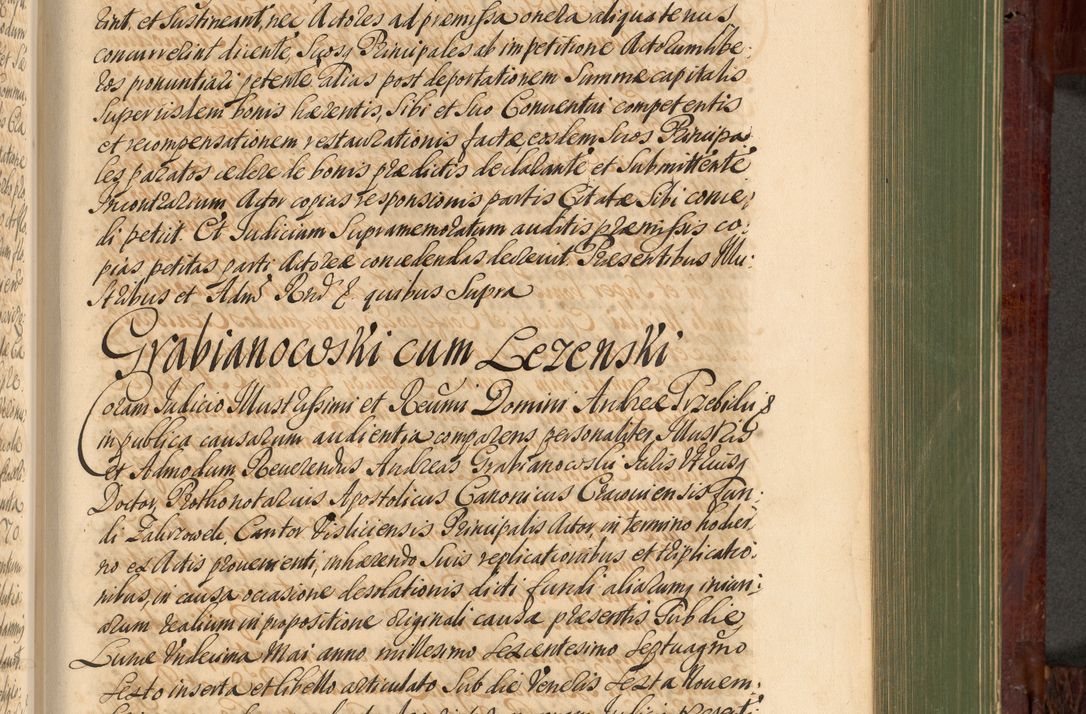 rint, et sustineant, nec Actores ad præmissa onera aliquatenus
concurrerint dicente, Suosq Principales ab impetitione Actorum libe-
ros pronuntiari petente, alias post deportationem Summæ capitalis
super iisdem bonis hærentis, sibi et suo Conventui competentis
et recompensationem restaurationis factæ eosdem suos Principa-
les paratos cedere de bonis prædictis declarante et submittente
In contrarium Actor copias responsionis partis Citatæ sibi conce-
di petiit. Et Judicium Supramemoratum auditis præmissis co-
pias petitas parti Actoreæ concedendas decrevit. Præsentibus Illu-
stribus et Admˢ Rndˢ &. quibus supra
Grabianowski cum Lezenski
Coram Judicio Illustrissimi et Reumi Domini Andreæ Trzebicki &
in publica causarum audientia comparens personaliter Illustris
et Admodum Reverendus Andreas Grabianowski Juris Utriusq
Doctor, Prothonotarius Apostolicus Canonicus Cracoviensis Fun-
di Cantor Visliciensis Principalis Actor in termino hodier-
no ex Actis proveniente, inhærendo suis replicationibus et triplicatio-
nibus, in causa occasione desolationis dicti fundi aliarumq iniuri-
arum realium in propositione originali causæ præsentis sub die
Lunæ Undecima Mai anno millesimo sexcentesimo septuagmo
sexto inserta et libello articulato sub die Veneris sexta Novem-